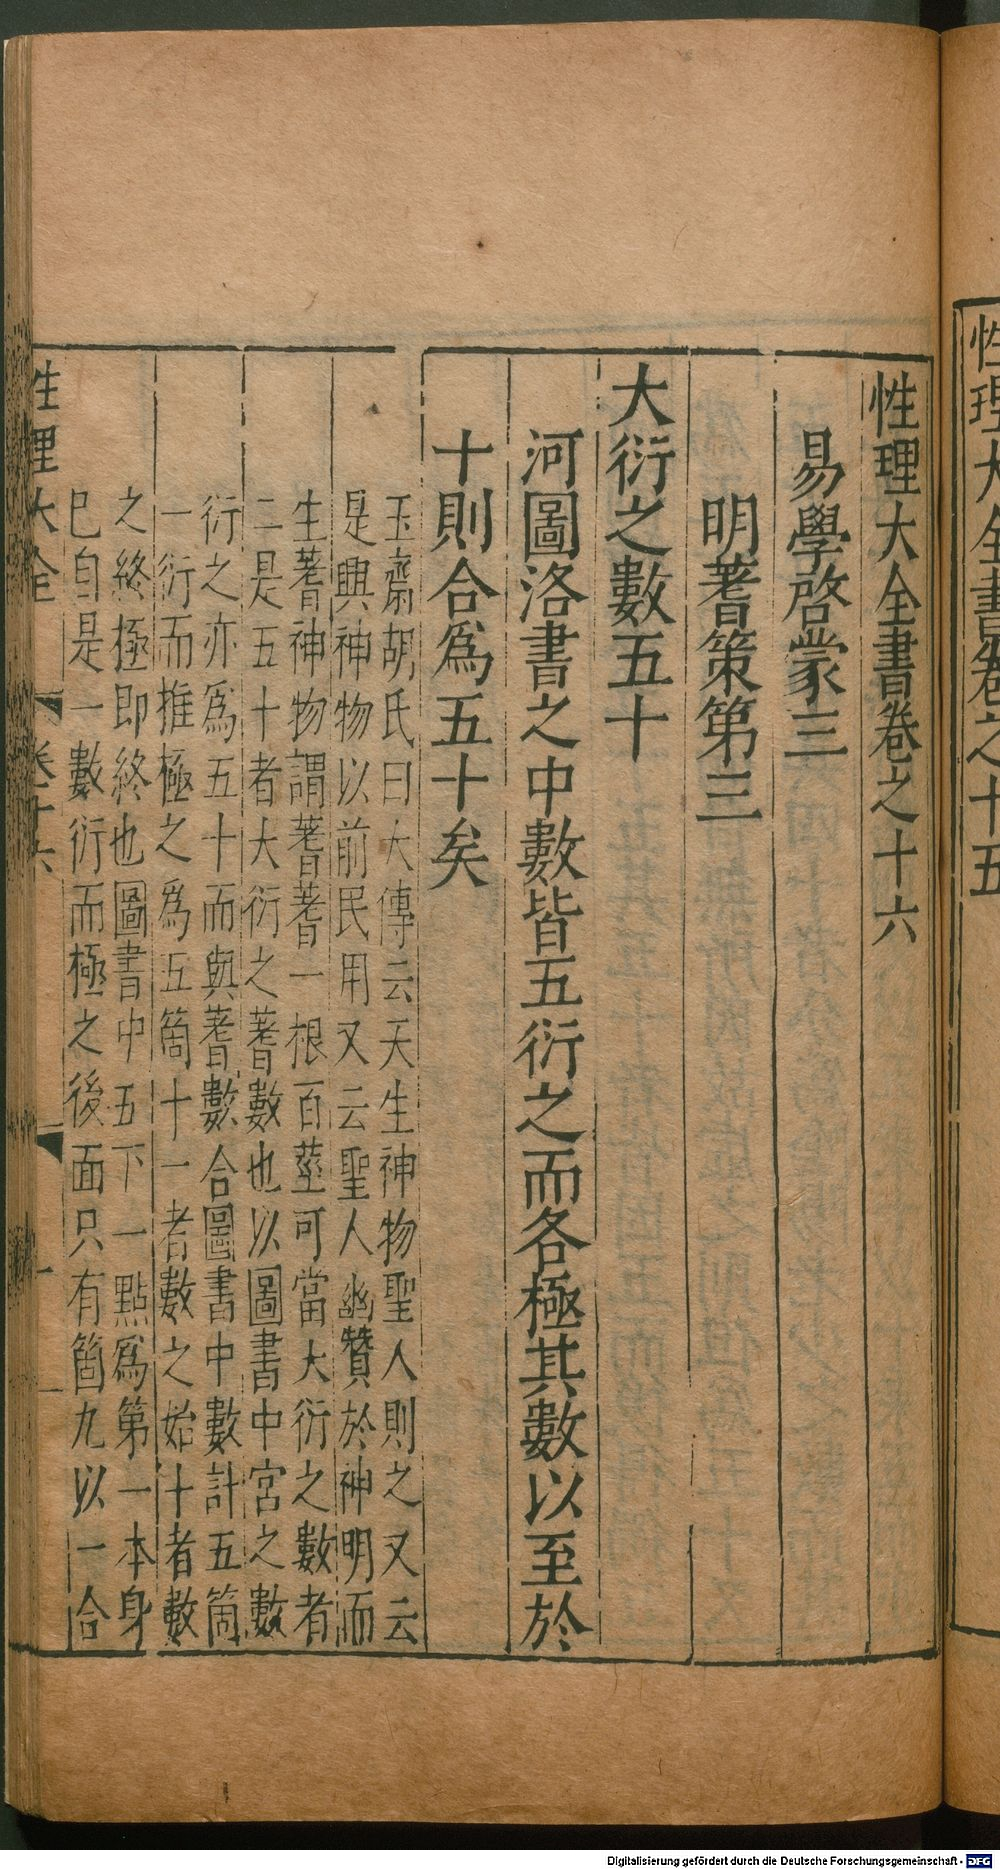 性理大全書卷之十五
性理大全書卷之十六
易學啓蒙三
明蓍策第三
大衍之數五十
河圖洛書之中數皆五衍之而各極其數以至於
十則合爲五十矣
玉齋胡氏曰大傳云天生神物聖人則之又云
是興神物以前民用又云聖人幽贊於神明而
生蓍神物謂蓍蓍一根百莖可當大衍之數者
二是五十者大衍之蓍數也以圖書中宮之數
衍之亦爲五十而與蓍數合圖書中數計五箇
一衍而推極之爲五箇十一者數之始十者數
之終極即終也圖書中五下一點爲第一本身
已自是一數衍而極之後面只有箇九以一合
性理大全 卷十六 一
Digitalisierung gefördert durch die Deutsche Forschungsgemeinschaft - DFG